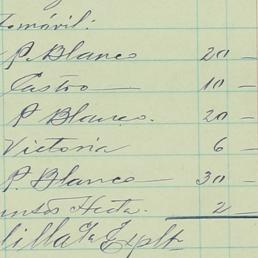 tomóvil:
P. Blanco 20 —
Castro — 10 —
P. Blanco. 20 —
Victoria 6 —
P. Blanco — 30 —
Hecta. 2 —
Explt